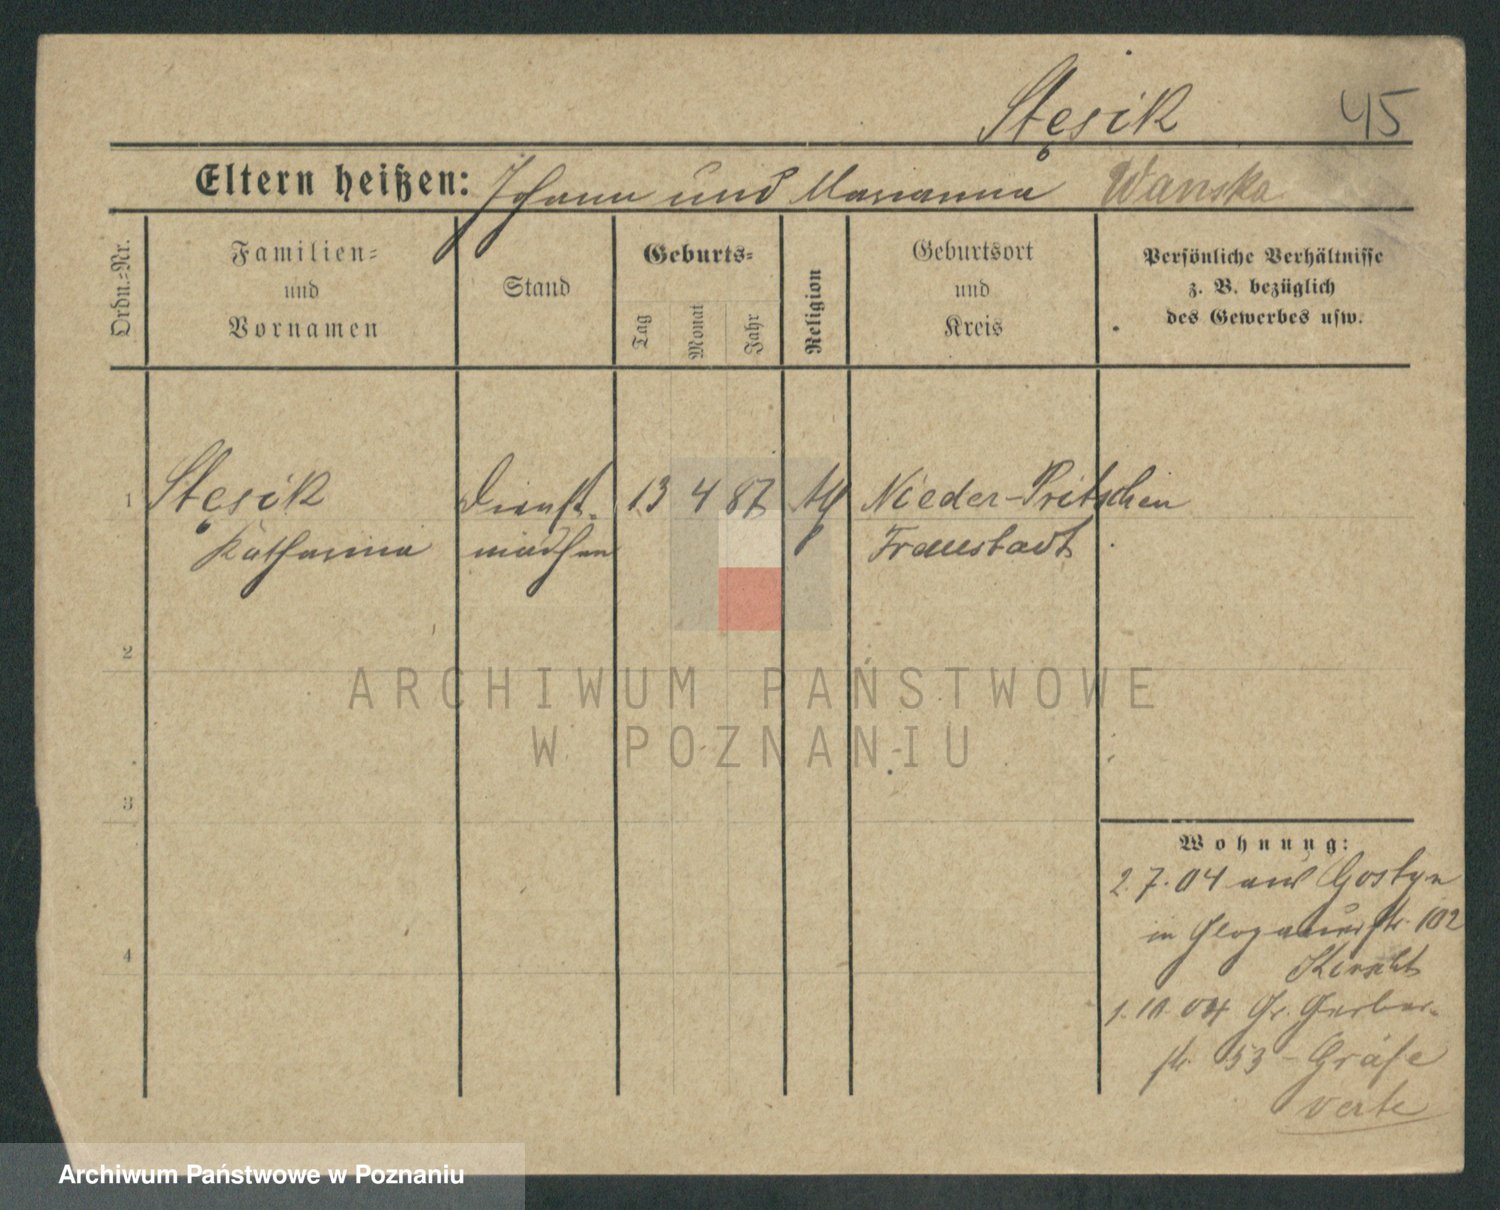 Stęsik 45
Eltern heißen: Johann und Marianna Wanska
Ordn.-Nr.
Familien-
und
Vornamen
Stand
Geburts-
Tag
Monat
Jahr
Religion
Geburtsort
und
Kreis
Persönliche Verhältnisse
z. B. bezüglich
des Gewerbes usw.
1 Stęsik Dienst- 13 4 87 Nieder-Pritschen
Katharina mädchen Fraustadt
2
3
4
Wohnung:
2.7.04 aus Gostyn
in Glogauerstr. 102
1.10.04 Gr. Gerber-
str. 53 - Gräfe
verte
ARCHIWUM PAŃSTWOWE
W POZNANIU
Archiwum Państwowe w Poznaniu